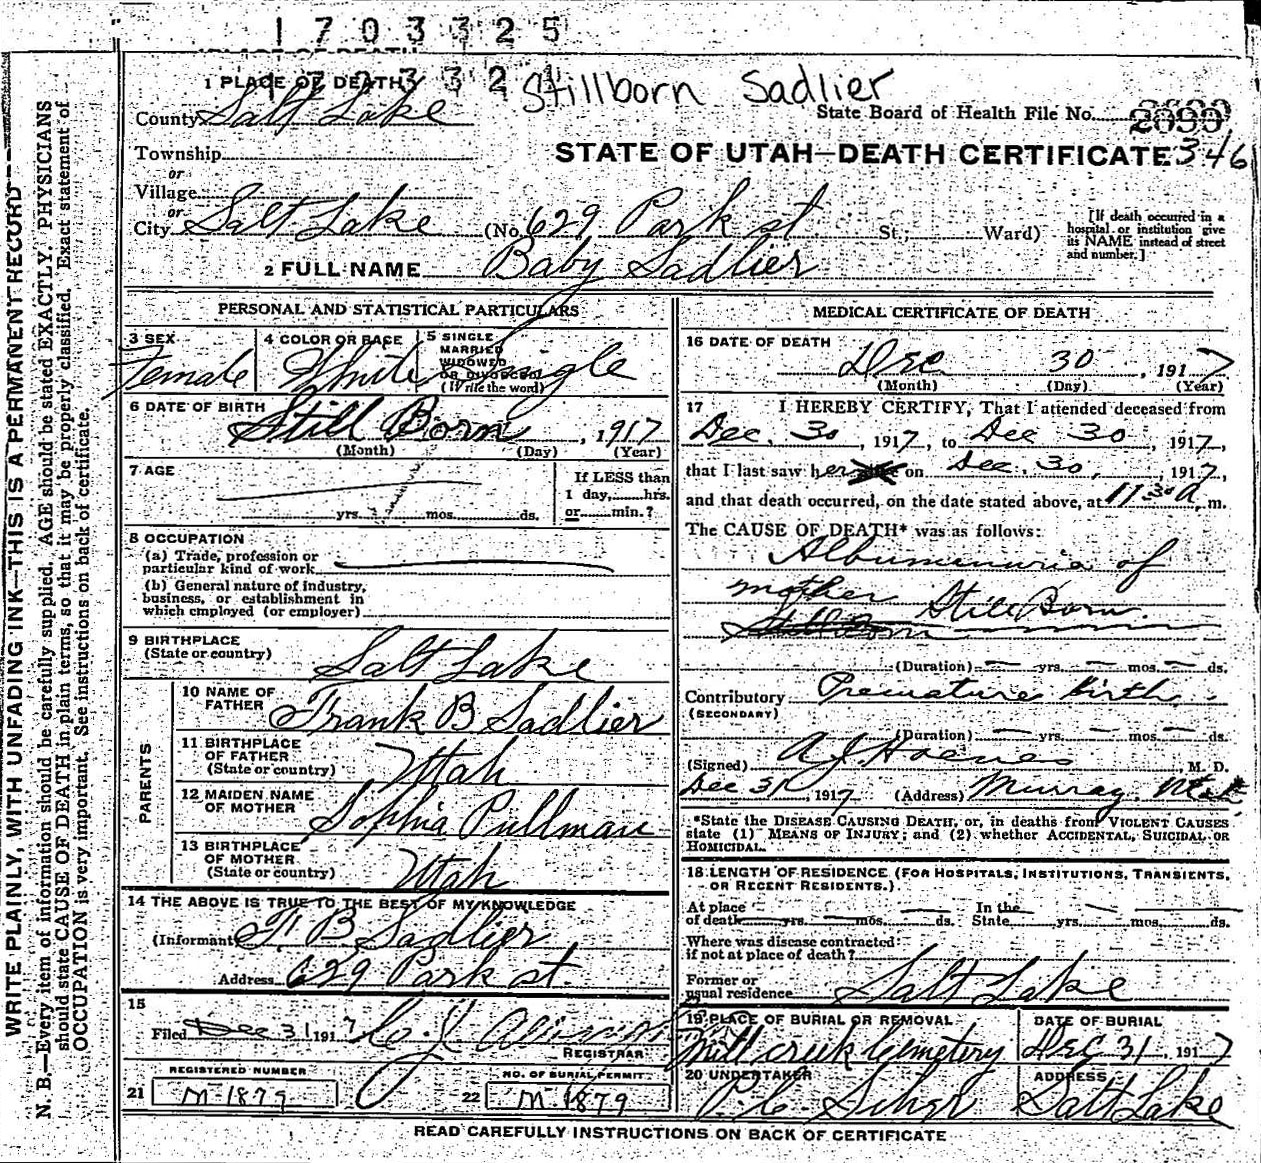 1703325
Stillborn Sadlier
1 PLACE OF DEATH
County Salt Lake
State Board of Health File No.
Township
STATE OF UTAH—DEATH CERTIFICATE 346
or
Village
or
City Salt Lake (No. 629 Park st. St.; Ward)
[If death occurred in a hospital or institution give its NAME instead of street and number.]
2 FULL NAME Baby Sadlier
PERSONAL AND STATISTICAL PARTICULARS
3 SEX Female
4 COLOR OR RACE White
5 SINGLE MARRIED WIDOWED OR DIVORCED (Write the word) Single
6 DATE OF BIRTH Still Born, 1917
(Month) (Day) (Year)
7 AGE
yrs. mos. ds.
If LESS than
1 day, hrs.
or min.?
8 OCCUPATION
(a) Trade, profession or
particular kind of work
(b) General nature of industry,
business, or establishment in
which employed (or employer)
9 BIRTHPLACE
(State or country) Salt Lake
PARENTS
10 NAME OF
FATHER Frank B Sadlier
11 BIRTHPLACE
OF FATHER
(State or country) Utah
12 MAIDEN NAME
OF MOTHER Sophia Pullman
13 BIRTHPLACE
OF MOTHER
(State or country) Utah
14 THE ABOVE IS TRUE TO THE BEST OF MY KNOWLEDGE
(Informant) F. B Sadlier
Address 629 Park st.
15
Filed Dec 31 1917
REGISTRAR
REGISTERED NUMBER
21 M-1879
NO. OF BURIAL PERMIT
22 M-1879
MEDICAL CERTIFICATE OF DEATH
16 DATE OF DEATH
Dec 30, 1917
(Month) (Day) (Year)
17 I HEREBY CERTIFY, That I attended deceased from
Dec. 30, 1917, to Dec 30, 1917,
that I last saw her alive on Dec. 30, 1917,
and that death occurred, on the date stated above, at 11 30 A. m.
The CAUSE OF DEATH* was as follows:
Albuminuria of
mother Still Born
Still Born
(Duration) yrs. mos. ds.
Contributory Premature Birth
(SECONDARY)
(Duration) yrs. mos. ds.
(Signed) A.J. M. D.
Dec 31, 1917 (Address) Murray, Utah
*State the DISEASE CAUSING DEATH, or, in deaths from VIOLENT CAUSES
state (1) MEANS OF INJURY; and (2) whether ACCIDENTAL, SUICIDAL OR
HOMICIDAL.
18 LENGTH OF RESIDENCE (FOR HOSPITALS, INSTITUTIONS, TRANSIENTS,
OR RECENT RESIDENTS.)
At place In the
of death yrs. mos. ds. State yrs. mos. ds.
Where was disease contracted
if not at place of death?
Former or
usual residence Salt Lake
19 PLACE OF BURIAL OR REMOVAL
Mill creek Cemetery
DATE OF BURIAL
DEC 31, 1917
20 UNDERTAKER
ADDRESS
Salt Lake
READ CAREFULLY INSTRUCTIONS ON BACK OF CERTIFICATE
WRITE PLAINLY, WITH UNFADING INK—THIS IS A PERMANENT RECORD
N. B.—Every item of information should be carefully supplied. AGE should be stated EXACTLY. PHYSICIANS
should state CAUSE OF DEATH in plain terms, so that it may be properly classified. Exact statement of
OCCUPATION is very important. See instructions on back of certificate.